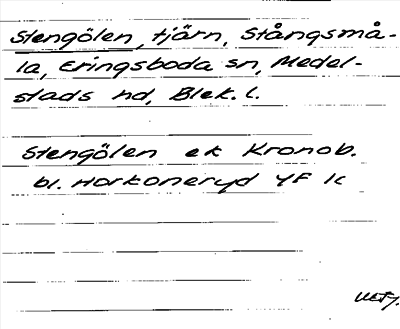 Stengölen, tjärn, Stångsmå-
la, Eringsboda sn, Medel-
stads hd, Blek. l.
Stengölen ek Kronob.
bl. Horkoneryd 4F 1c